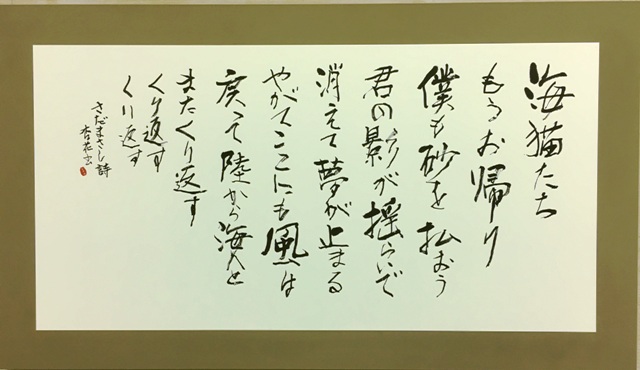 海猫たち
もうお帰り
僕も砂を払おう
君の影が揺らいで
消えて夢が止まる
やがてここにも風は
戻って陸から海へと
またくり返す
くり返す
くり返す
さだまさし詩
杏花書